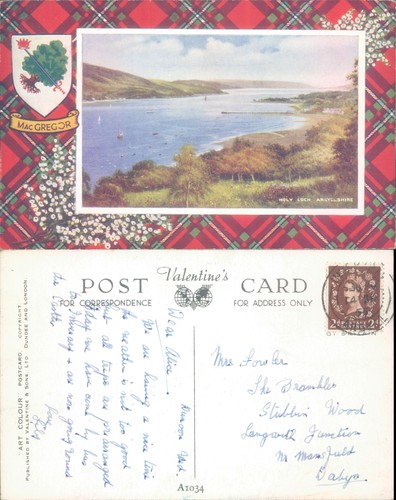 MACGREGOR
HOLY LOCH ARGYLLSHIRE
Valentine's
POST CARD
FOR CORRESPONDENCE
FOR ADDRESS ONLY
"ART COLOUR" POSTCARD COPYRIGHT
PUBLISHED BY VALENTINE & SONS LTD DUNDEE AND LONDON
A1034
Dunoon Wed
Dear Alice
We are having a nice time
the weather is not too good
but all trips are pre arranged
today we have come by bus
to and are now going round
the
Love
Mrs Fowler
The Bramble
Stubbin Wood
Langwith Junction
Nr Mansfield
Derbys